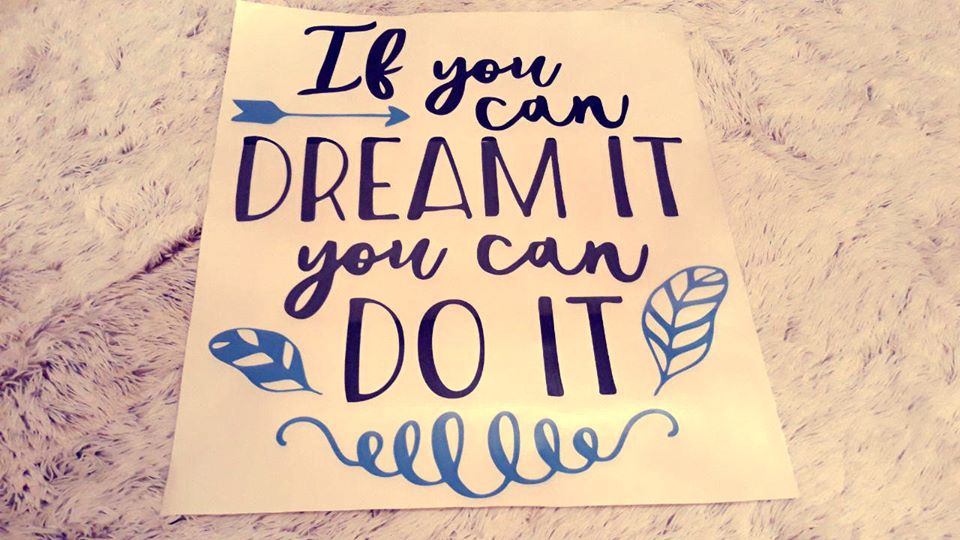 If you
can
DREAM IT
you can
DO IT